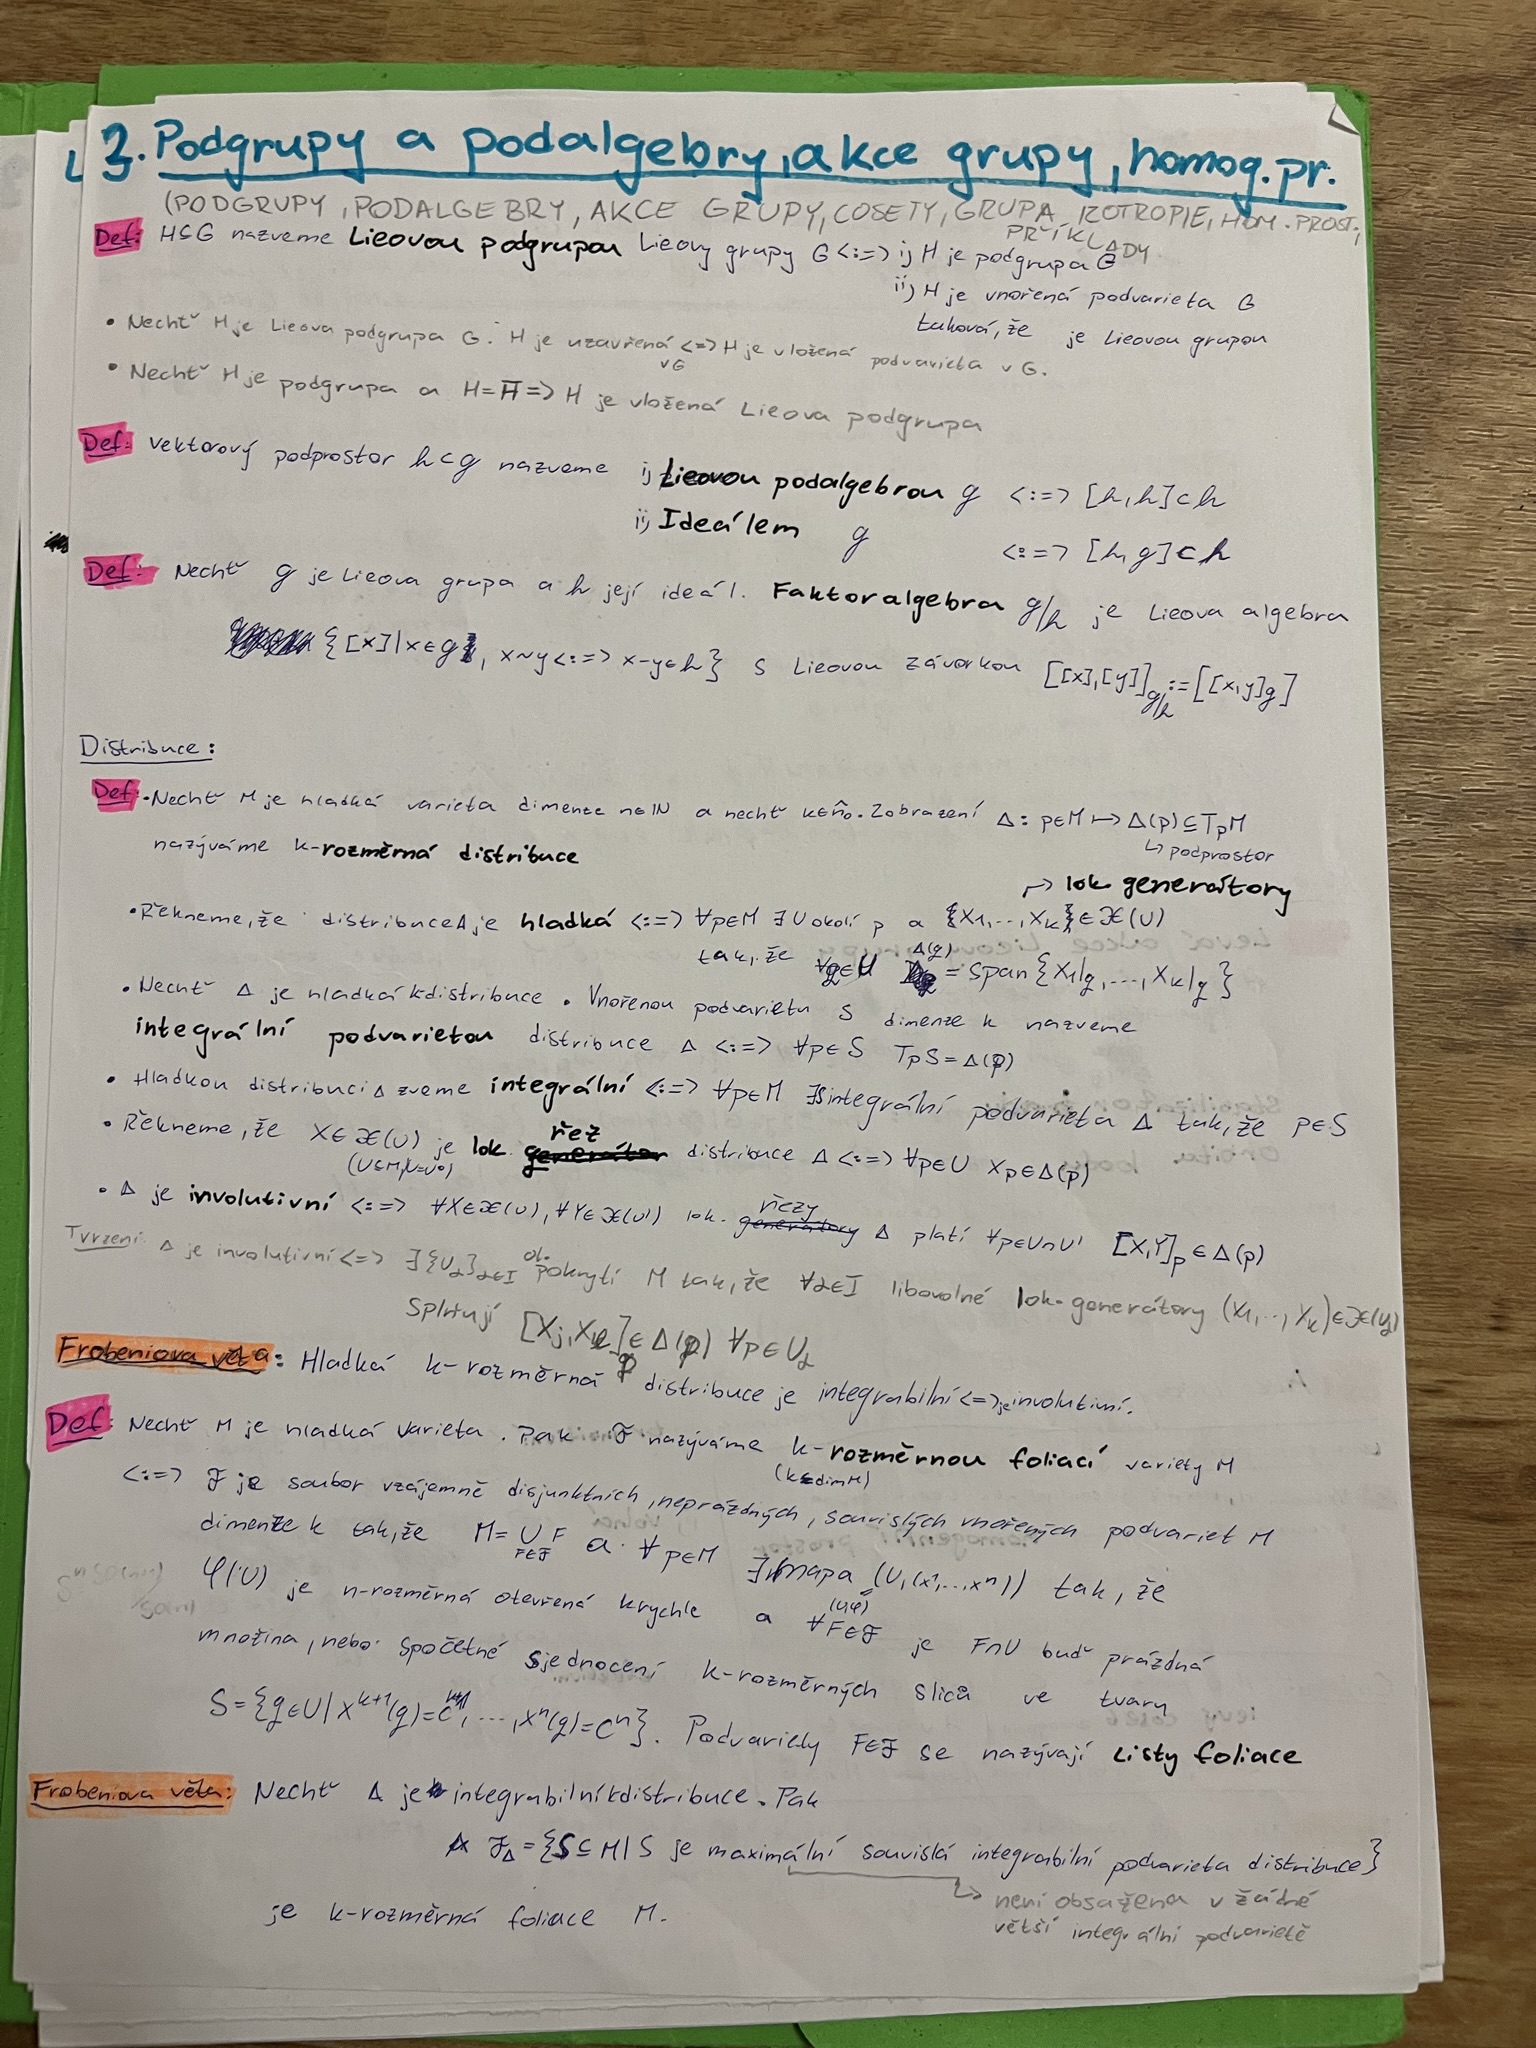 3. Podgrupy a podalgebry, akce grupy, homog. pr.
(PODGRUPY, PODALGEBRY, AKCE GRUPY, COSETY, GRUPA IZOTROPIE, HOM. PROST.,
PŘÍKLADY
Def: H⊆G nazveme Lieovou podgrupou Lieovy grupy G <:=> i) H je podgrupa G
ii) H je vnořená podvarieta G
taková, že je Lieovou grupou
• Nechť H je Lieova podgrupa G. H je uzavřená <=> H je vložená podvarieta v G.
v G
• Nechť H je podgrupa a H=H̅ => H je vložená Lieova podgrupa
Def: Vektorový podprostor h⊂g nazveme i) Lieovou podalgebrou g <:=> [h,h]⊂h
ii) Ideálem g <:=> [h,g]⊂h
Def: Nechť g je Lieova grupa a h její ideál. Faktoralgebra g/h je Lieova algebra
{[x]|x∈g, x~y<:=> x-y∈h} s Lieovou závorkou [[x],[y]]g/h := [[x,y]g]
Distribuce:
Def: • Nechť M je hladká varieta dimenze n∈ℕ a nechť k∈n̂₀. Zobrazení Δ: p∈M ↦ Δ(p)⊆TpM
↳ podprostor
nazýváme k-rozměrná distribuce
↱ lok. generátory
• Řekneme, že distribuce Δ je hladká <:=> ∀p∈M ∃U okolí p a {X₁,...,Xₖ}∈𝔛(U)
tak, že ∀q∈U Δ(q) = span{X₁|q,...,Xₖ|q}
• Nechť Δ je hladká k distribuce. Vnořenou podvarietu S dimenze k nazveme
integrální podvarietou distribuce Δ <:=> ∀p∈S TpS=Δ(p)
• Hladkou distribuci Δ zveme integrální <:=> ∀p∈M ∃S integrální podvarieta Δ tak, že p∈S
• Řekneme, že X∈𝔛(U) je lok. řez distribuce Δ <:=> ∀p∈U Xp∈Δ(p)
(U⊆M, U=U⁰)
• Δ je involutivní <:=> ∀X∈𝔛(U), ∀Y∈𝔛(U') lok. řezy Δ platí ∀p∈U∩U' [X,Y]p∈Δ(p)
Tvrzení: Δ je involutivní <=> ∃{Uα}α∈I ot. pokrytí M tak, že ∀α∈I libovolné lok. generátory (X₁,...,Xₖ)∈𝔛(Uα)
splňují [Xj,Xk]p∈Δ(p) ∀p∈Uα
Frobeniova věta: Hladká k-rozměrná distribuce je integrabilní <=> je involutivní.
Def: Nechť M je hladká varieta. Pak ℱ nazýváme k-rozměrnou foliací variety M
(k≤dim M)
<:=> ℱ je soubor vzájemně disjunktních, neprázdných, souvislých vnořených podvariet M
dimenze k tak, že M=∪F∈ℱ F a ∀p∈M ∃ mapa (U,(x¹,...,xⁿ)) tak, že
(U,φ)
φ(U) je n-rozměrná otevřená krychle a ∀F∈ℱ je F∩U buď prázdná
množina, nebo spočetné sjednocení k-rozměrných sliců ve tvaru
S={q∈U|x^{k+1}(q)=c^{k+1},...,xⁿ(q)=cⁿ}. Podvariety F∈ℱ se nazývají Listy foliace
Frobeniova věta: Nechť Δ je integrabilní k distribuce. Pak
ℱ_Δ={S⊆M|S je maximální souvislá integrabilní podvarieta distribuce}
↳ není obsažena v žádné
větší integrální podvarietě
je k-rozměrná foliace M.